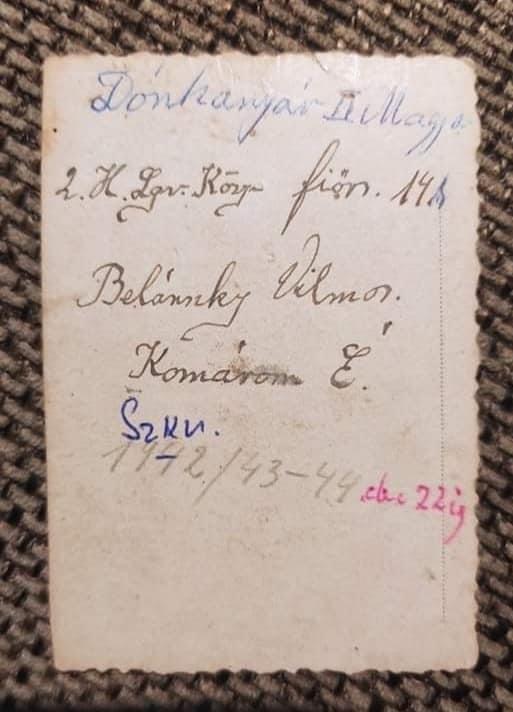 Dónkanyár II Magya
2. H. Lgv. Köz. fiörs. 141
Belánnky Vilmos.
Komárom É.
Szkv.
1942/43-44 db. 22ig